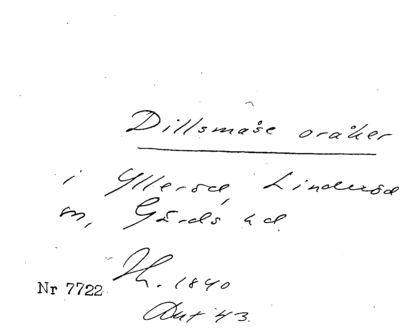 Dillsmåse oråker
i Ylleröd, Linderöd
sn, Gärds hd.
Nr 7722 Th. 1840
Ant 43.